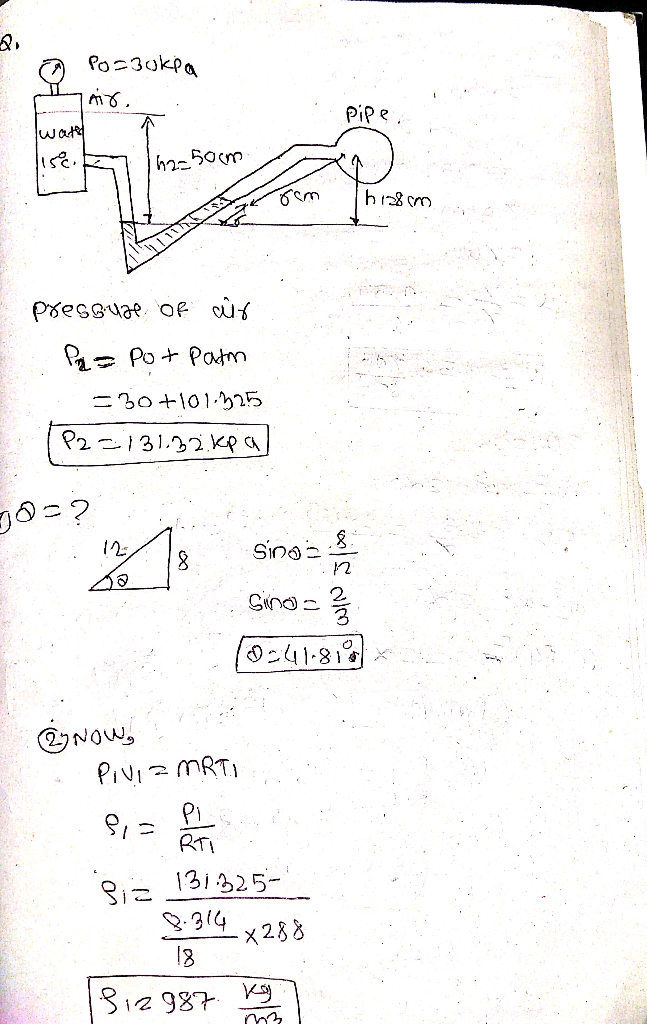 Q.
Po=30kpa
Air.
Pipe.
wate
15°c.
h2=50cm
6cm
h1=8cm
pressure of air
P2 = Po + Patm
=30+101.325
P2=131.32 kpa
θ=?
12
8
θ
sinθ = 8/12
sinθ = 2/3
θ=41.81°
② Now,
P1V1 = MRT1
ρ1 = P1/RT1
ρ1= 131.325/(8.314/18 ×288)
ρ1=987 kg/m3